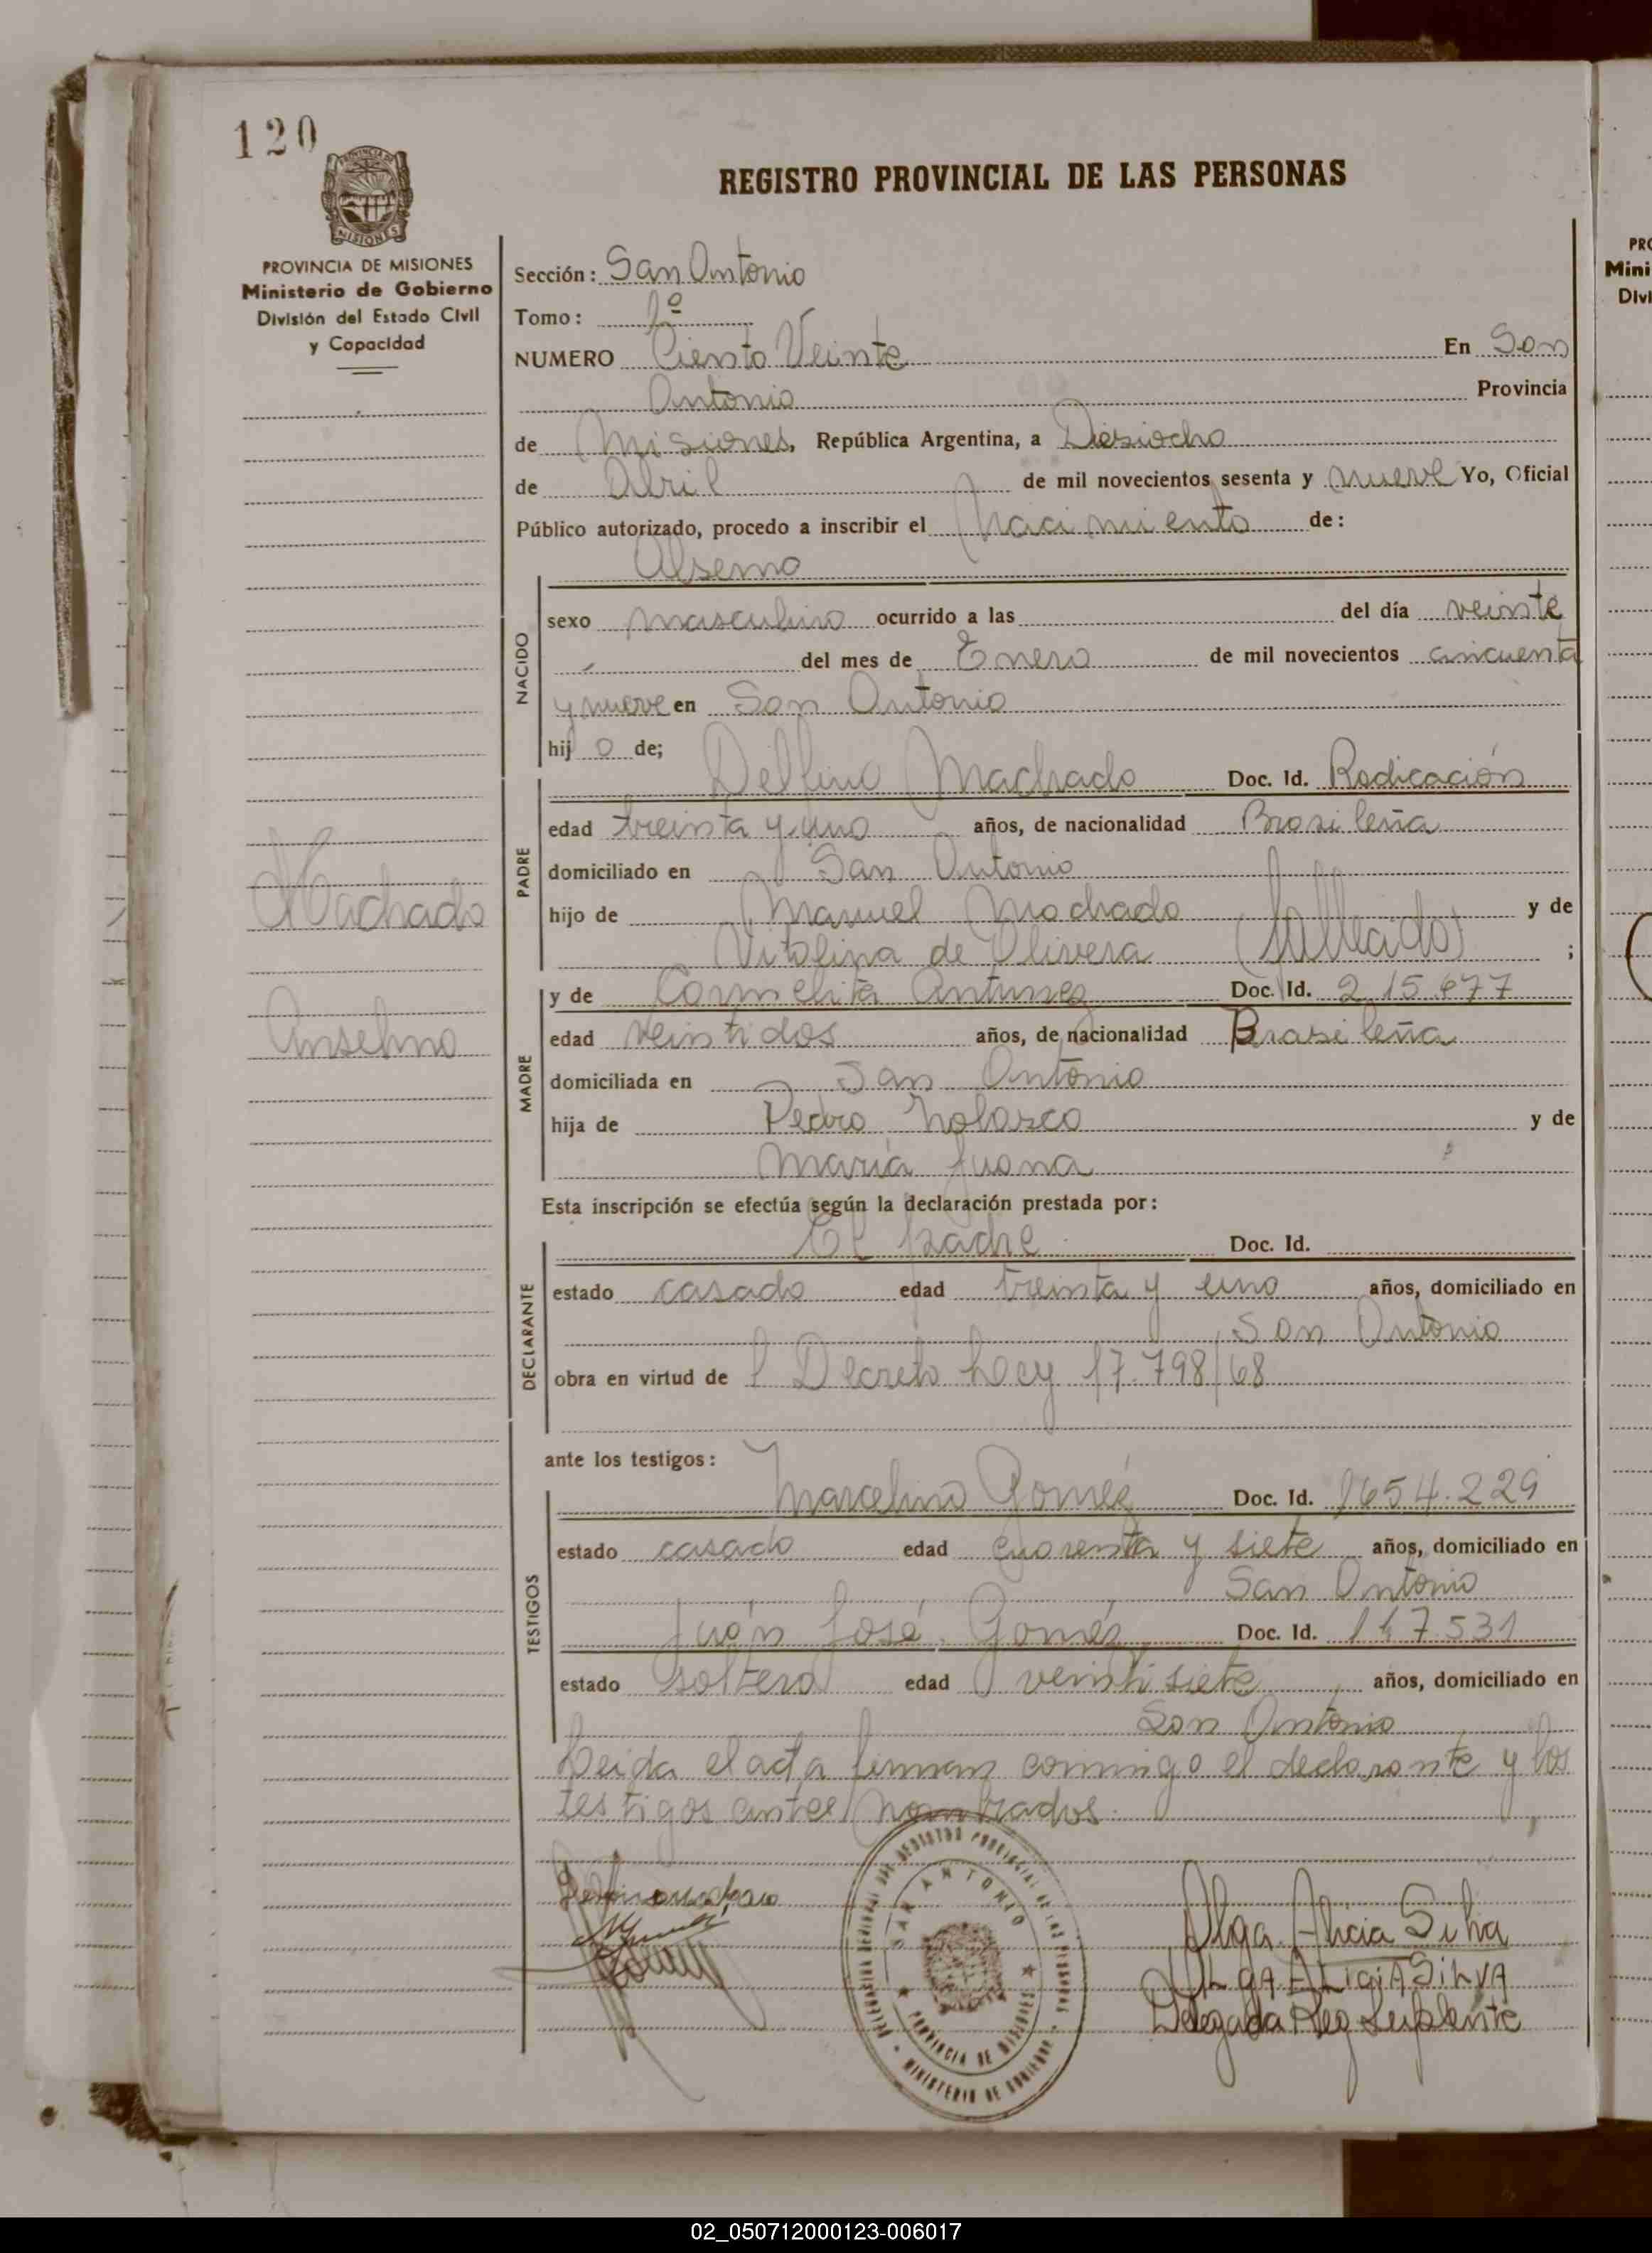 120
REGISTRO PROVINCIAL DE LAS PERSONAS
PROVINCIA DE MISIONES
Ministerio de Gobierno
División del Estado Civil
y Capacidad
Sección: San Antonio
Tomo: 1º
NUMERO Ciento Veinte En San
Antonio Provincia
de Misiones, República Argentina, a Diesiocho
de Abril de mil novecientos sesenta y nueve Yo, Oficial
Público autorizado, procedo a inscribir el Nacimiento de:
NACIDO
Alsemo
sexo masculino ocurrido a las del día veinte
del mes de Enero de mil novecientos cincuenta
y nueve en San Antonio
hijo de;
PADRE
Delfino Machado Doc. Id. Radicación
edad treinta y uno años, de nacionalidad Brasileña
domiciliado en San Antonio
hijo de Manuel Machado y de
Vitalina de Olivera ;
Machado
Anselmo
MADRE
y de Carmelita Antunez Doc. Id.
edad veintidos años, de nacionalidad Brasileña
domiciliada en San Antonio
hija de Pedro Nolasco y de
María Juana
Esta inscripción se efectúa según la declaración prestada por:
DECLARANTE
El padre Doc. Id.
estado casado edad treinta y uno años, domiciliado en
San Antonio
obra en virtud de l Decreto Ley 17.798/68
ante los testigos:
TESTIGOS
Marcelino Goméz Doc. Id. 1654.229
estado casado edad cuarenta y siete años, domiciliado en
San Antonio
Juán José Goméz Doc. Id.
estado soltero edad veintisiete años, domiciliado en
San Antonio
Leida el acta firman conmigo el declarante y los
testigos antes nombrados.
SAN ANTONIO
PROVINCIA DE MISIONES
MINISTERIO DE GOBIERNO
Olga Alicia Silva
OLGA ALICIA SILVA
Delegada Reg Suplente
PRO
Mini
Divi
02_050712000123-006017